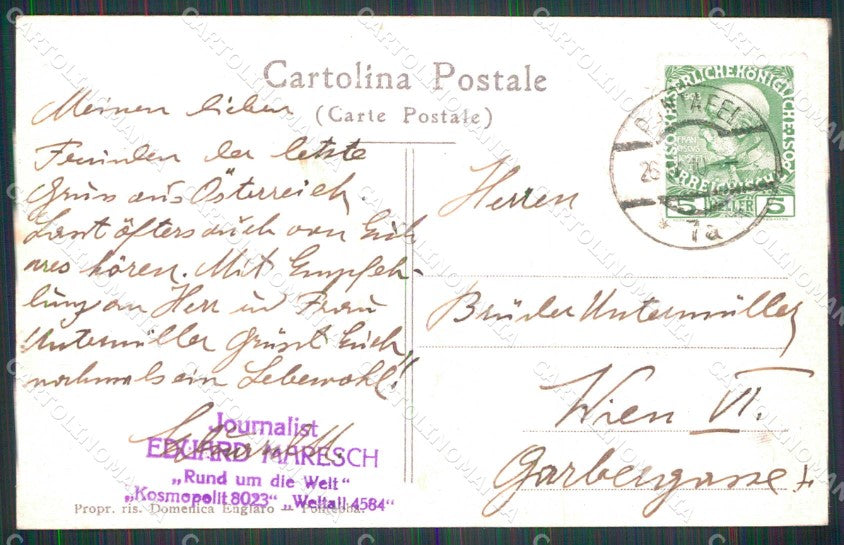 Cartolina Postale
(Carte Postale)
Meinen lieben
Freunden der letzte
Gruss aus Österreich.
Lasst öfters auch von Euch
was hören. Mit Empfeh-
lung an Herr und Frau
Untermüller Grüsst Euch
nochmals ein Lebewohl!
Journalist
EDUARD MARESCH
„Rund um die Welt"
„Kosmopolit 8023" „Weltall 4584"
Propr. ris. Domenica Englaro - Pontebba.
Herren
Brüder Untermüller
Wien VI.
Garbergasse
5 HELLER 5
26
7a
CARTOLINOMANIA